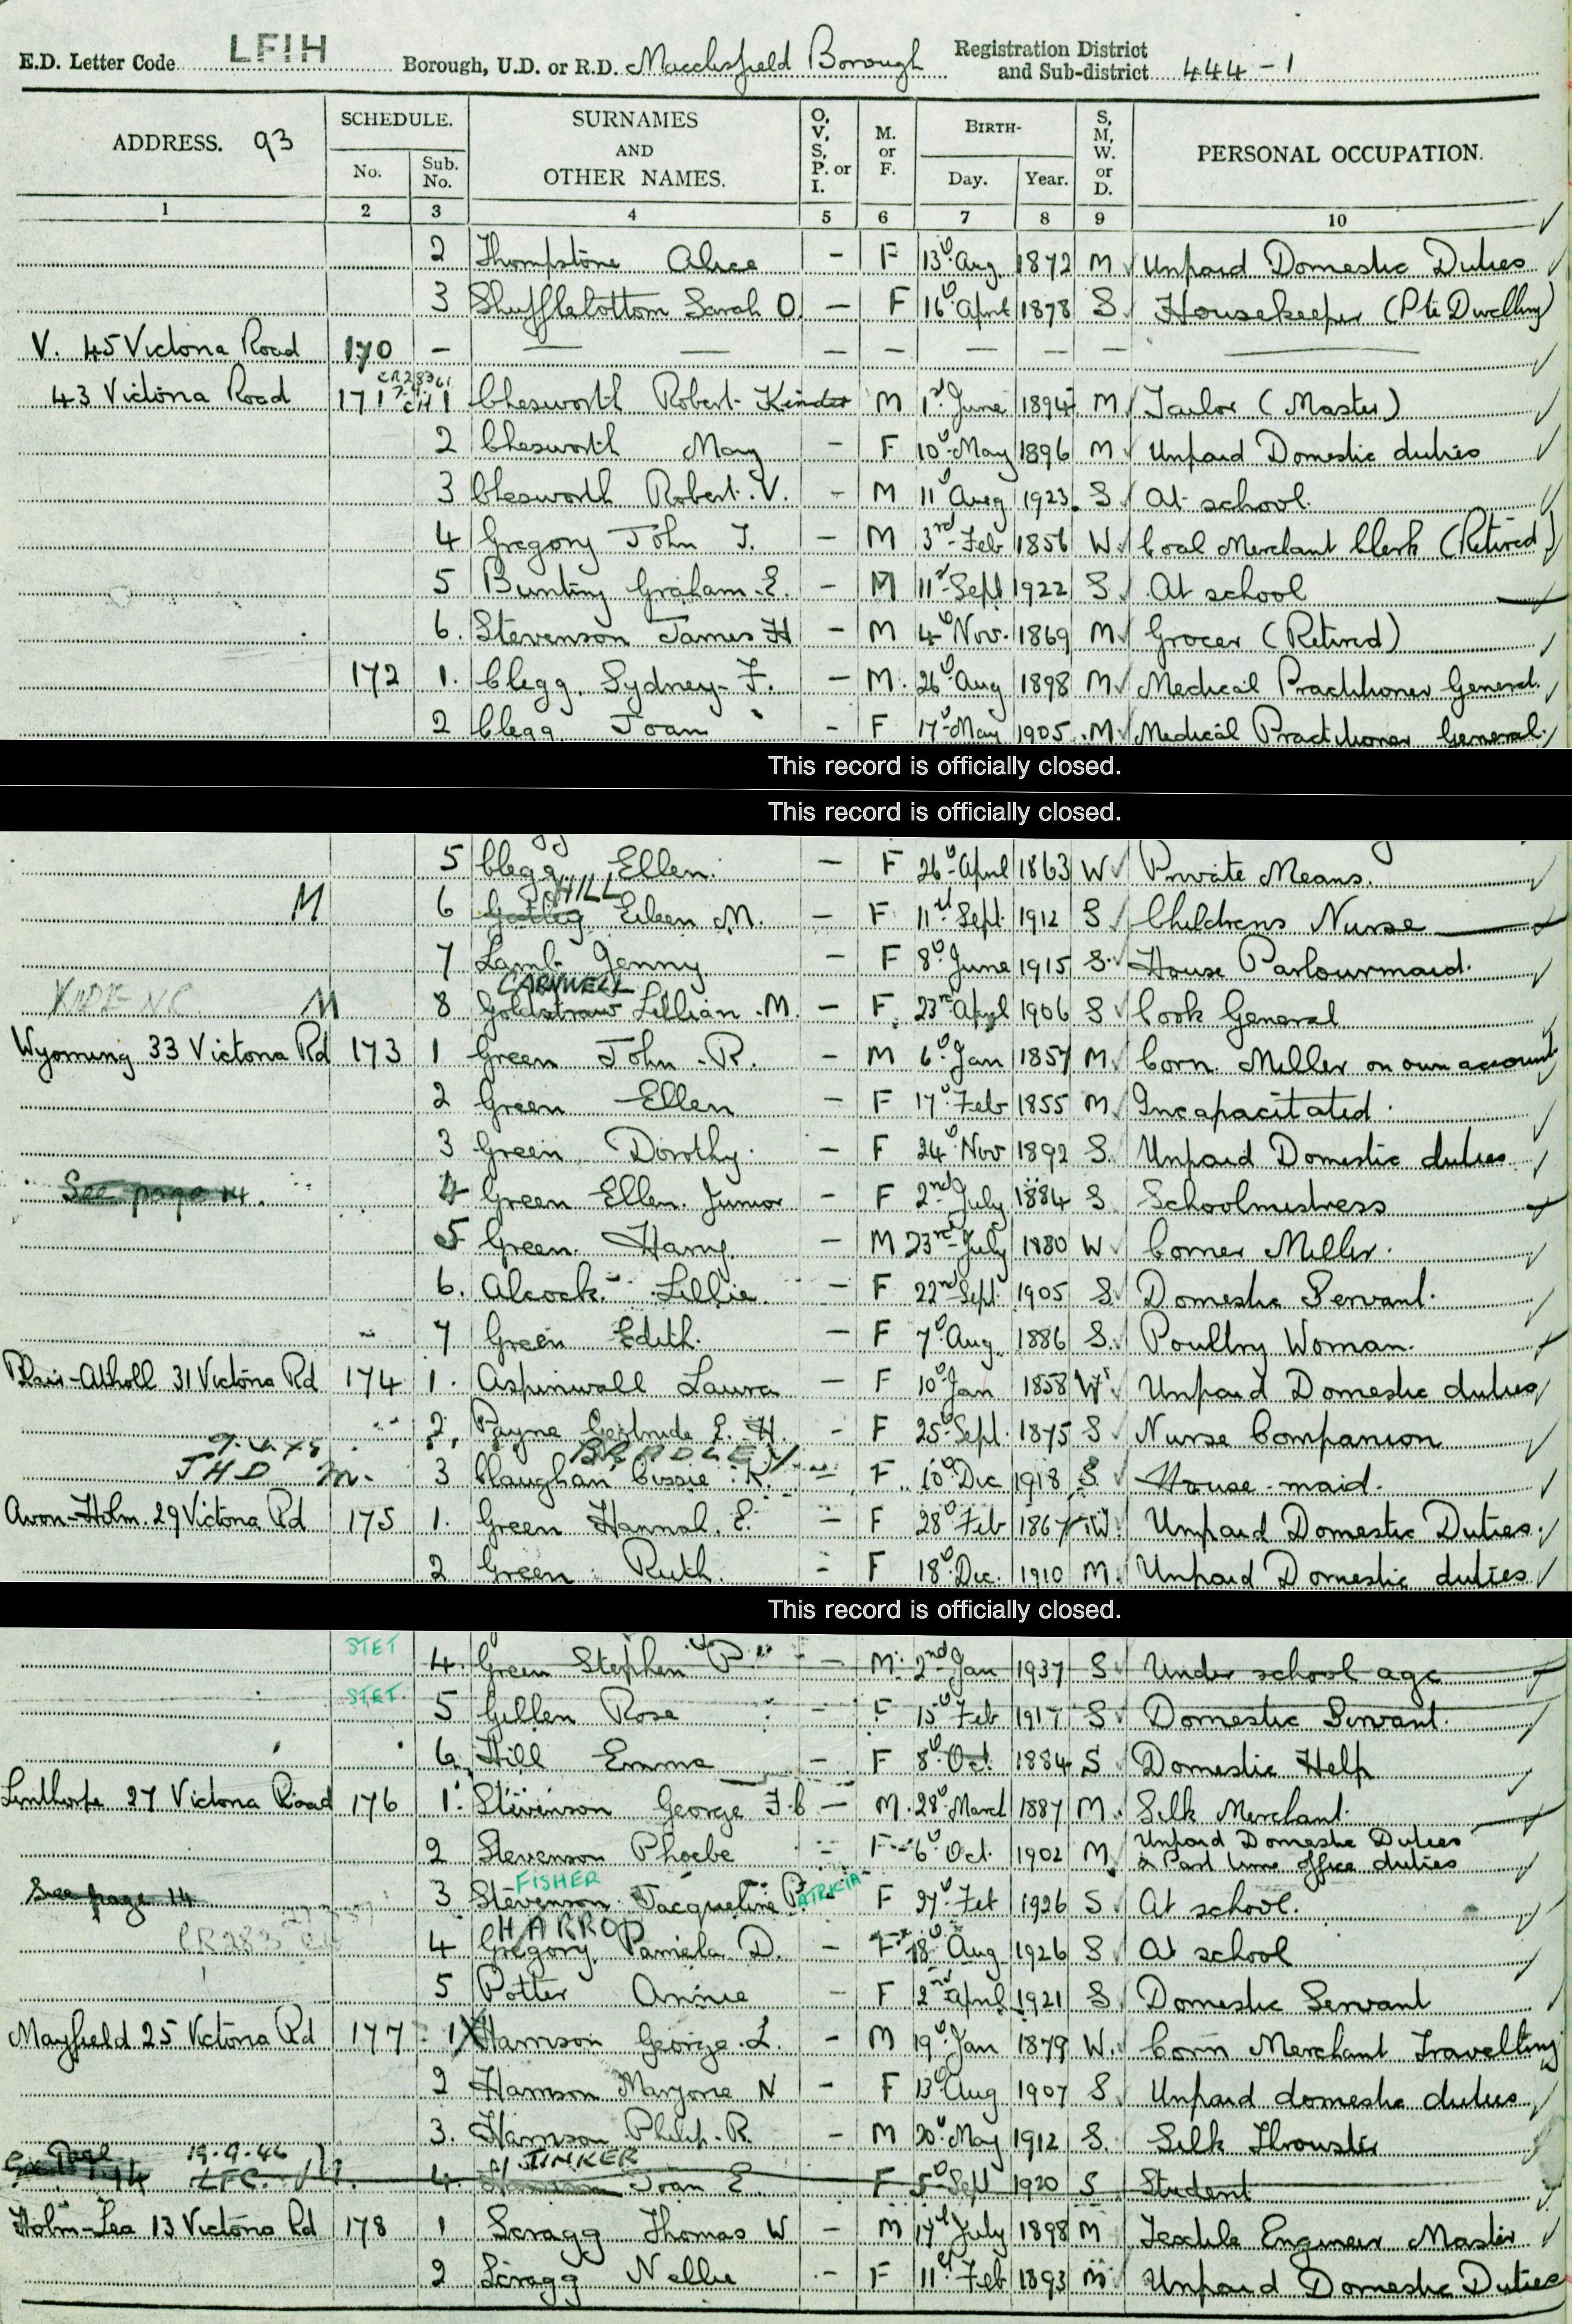 E.D. Letter Code LFIH Borough, U.D. or R.D. Macclesfield Borough Registration District and Sub-district 444-1
ADDRESS. 93 SCHEDULE. No. Sub. No. SURNAMES AND OTHER NAMES. O, V, S, P. or I. M. or F. BIRTH- Day. Year. S, M, W. or D. PERSONAL OCCUPATION.
1 2 3 4 5 6 7 8 9 10
2 Thompstone Alice - F 13 Aug 1872 M Unpaid Domestic Duties
3 Shufflebottom Sarah O - F 16 April 1878 S Housekeeper (Pte Dwelling)
V. 45 Victoria Road 170 - — — — — — — — —
43 Victoria Road 171 CR283 CH 1 Chesworth Robert Kinder M 1st June 1894 M Tailor (Master)
2 Chesworth May - F 10 May 1896 M Unpaid Domestic duties
3 Chesworth Robert. V. - M 11 Aug 1923 S At school
4 Gregory John T. - M 3rd Feb 1856 W Coal Merchant Clerk (Retired)
5 Bunting Graham. E. - M 11 Sept 1922 S At school
6. Stevenson James H - M 4 Nov. 1869 M Grocer (Retired)
172 1. Clegg. Sydney. F. - M. 26 Aug 1898 M Medical Practitioner General.
2 Clegg Joan - F 17 May 1905 M Medical Practitioner General.
This record is officially closed.
This record is officially closed.
5 Clegg Ellen. - F 26 April 1863 W Private Means.
HILL
M 6 Eileen M. - F 11 Sept. 1912 S Childrens Nurse
7 Lamb Jenny - F 8 June 1915 S House Parlourmaid.
CARNWELL
M 8 Goldstraw Lillian. M. - F 23rd April 1906 S Cook General
Wyoming 33 Victoria Rd 173 1 Green John. R. - M 6 Jan 1857 M Corn Miller on own account
2 Green Ellen - F 17 Feb 1855 M Incapacitated.
3 Green Dorothy. - F 24 Nov 1892 S. Unpaid Domestic duties
See page 14. 4 Green Ellen. Junior - F 2nd July 1884 S Schoolmistress
5 Green. Harry. - M 23rd July 1880 W Corner Miller.
6. Alcock. Lillie. - F 22nd Sept. 1905 S. Domestic Servant.
7 Green Edith. - F 7 Aug 1886 S. Poultry Woman.
Blair-Atholl 31 Victoria Rd 174 1. Aspinwall Laura - F 10 Jan 1858 W Unpaid Domestic duties
2. Payne Gertrude E. H. - F 25 Sept. 1875 S Nurse Companion
BRADLEY
JHD M. 3 Cissie. K. - F 10 Dec 1918 S House-maid.
Avon-Holm. 29 Victoria Rd 175 1. Green Hannah. E. - F 28 Feb 1867 W. Unpaid Domestic Duties.
2 Green Ruth. - F 18 Dec. 1910 M. Unpaid Domestic duties
This record is officially closed.
STET 4. Green Stephen P - M. 2nd Jan 1937 S Under school age
STET 5 Gillen Rose - F 15 Feb 1917 S Domestic Servant.
6. Hill Emma - F 8 Oct. 1884 S Domestic Help
Linthorpe 27 Victoria Road 176 1. Stevenson George F. C - M. 28 March 1887 M. Silk Merchant.
2 Stevenson Phoebe - F 6 Oct. 1902 M Unpaid Domestic Duties & Part time office duties
FISHER
See page 14 3 Stevenson Jacqueline PATRICIA F 27 Feb 1926 S At school.
HARROP
CR283 4 Gregory Pamela D. - F 18 Aug 1926 S At school
5 Potter Annie F 2nd April 1921 S Domestic Servant
Mayfield 25 Victoria Rd 177 1 Harrison George. L. - M 19 Jan 1879 W. Corn Merchant Travelling
2 Harrison Marjorie N - F 13 Aug 1907 S Unpaid domestic duties
3. Harrison Philip. R. - M 20 May 1912 S. Silk Throwster
TINKER
See Page 14 19.9.46 LFC. M. 4. Harrison Joan E. F 5 Sept 1920 S Student
Holm-Lea 13 Victoria Rd 178 1 Scragg Thomas W - M 17 July 1898 M Textile Engineer Master
2 Scragg Nellie - F 11 Feb 1893 M Unpaid Domestic Duties